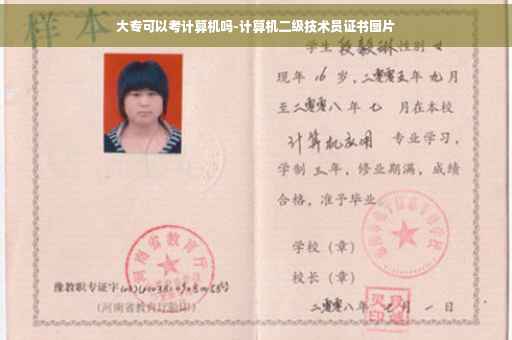 大专可以考计算机吗-计算机二级技术员证书图片
样本
学生 段毅琳 性别 女
现年 16 岁，二零零五年 九 月
至二零零八年 七 月在本校
计算机应用 专业学习，
学制 三 年，修业期满，成绩
合格，准予毕业。
学校（章）
校长（章）
二零零八年 七 月 一 日
河南省教育厅
豫教职专证字
（河南省教育厅验印）